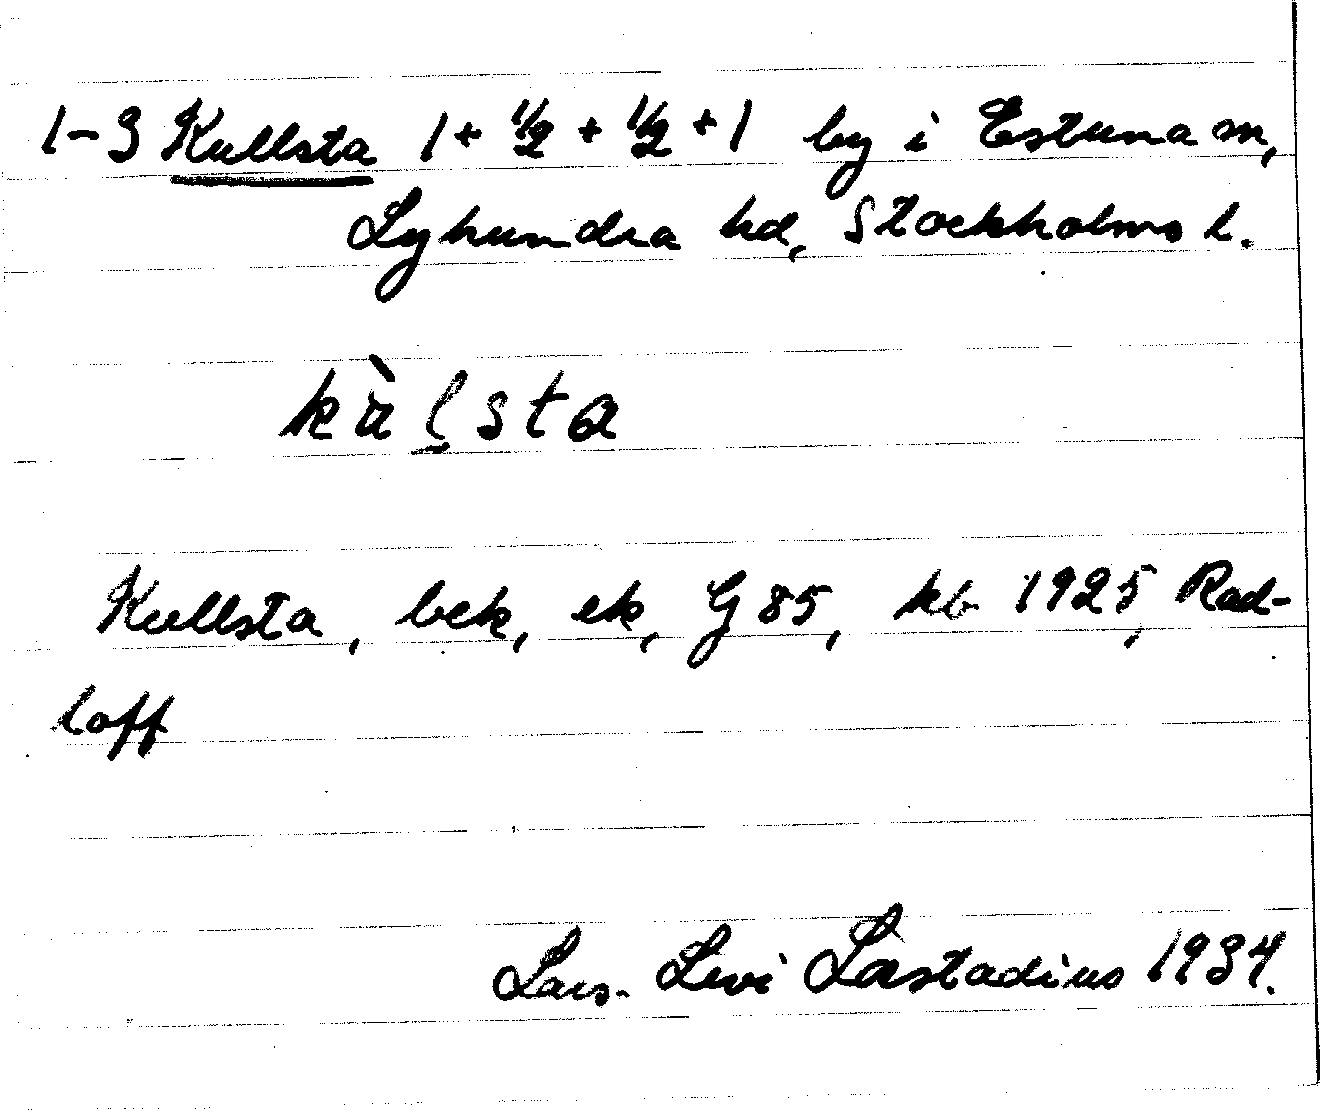 1-3 Kullsta 1+ 1/2 + 1/2 +1 by i Estuna sn,
Lyhundra hd, Stockholms l.
kàḷsta
Kullsta, bek, ek, G 85, kb 1925, Rad-
loff
Lars-Levi Læstadius 1934.